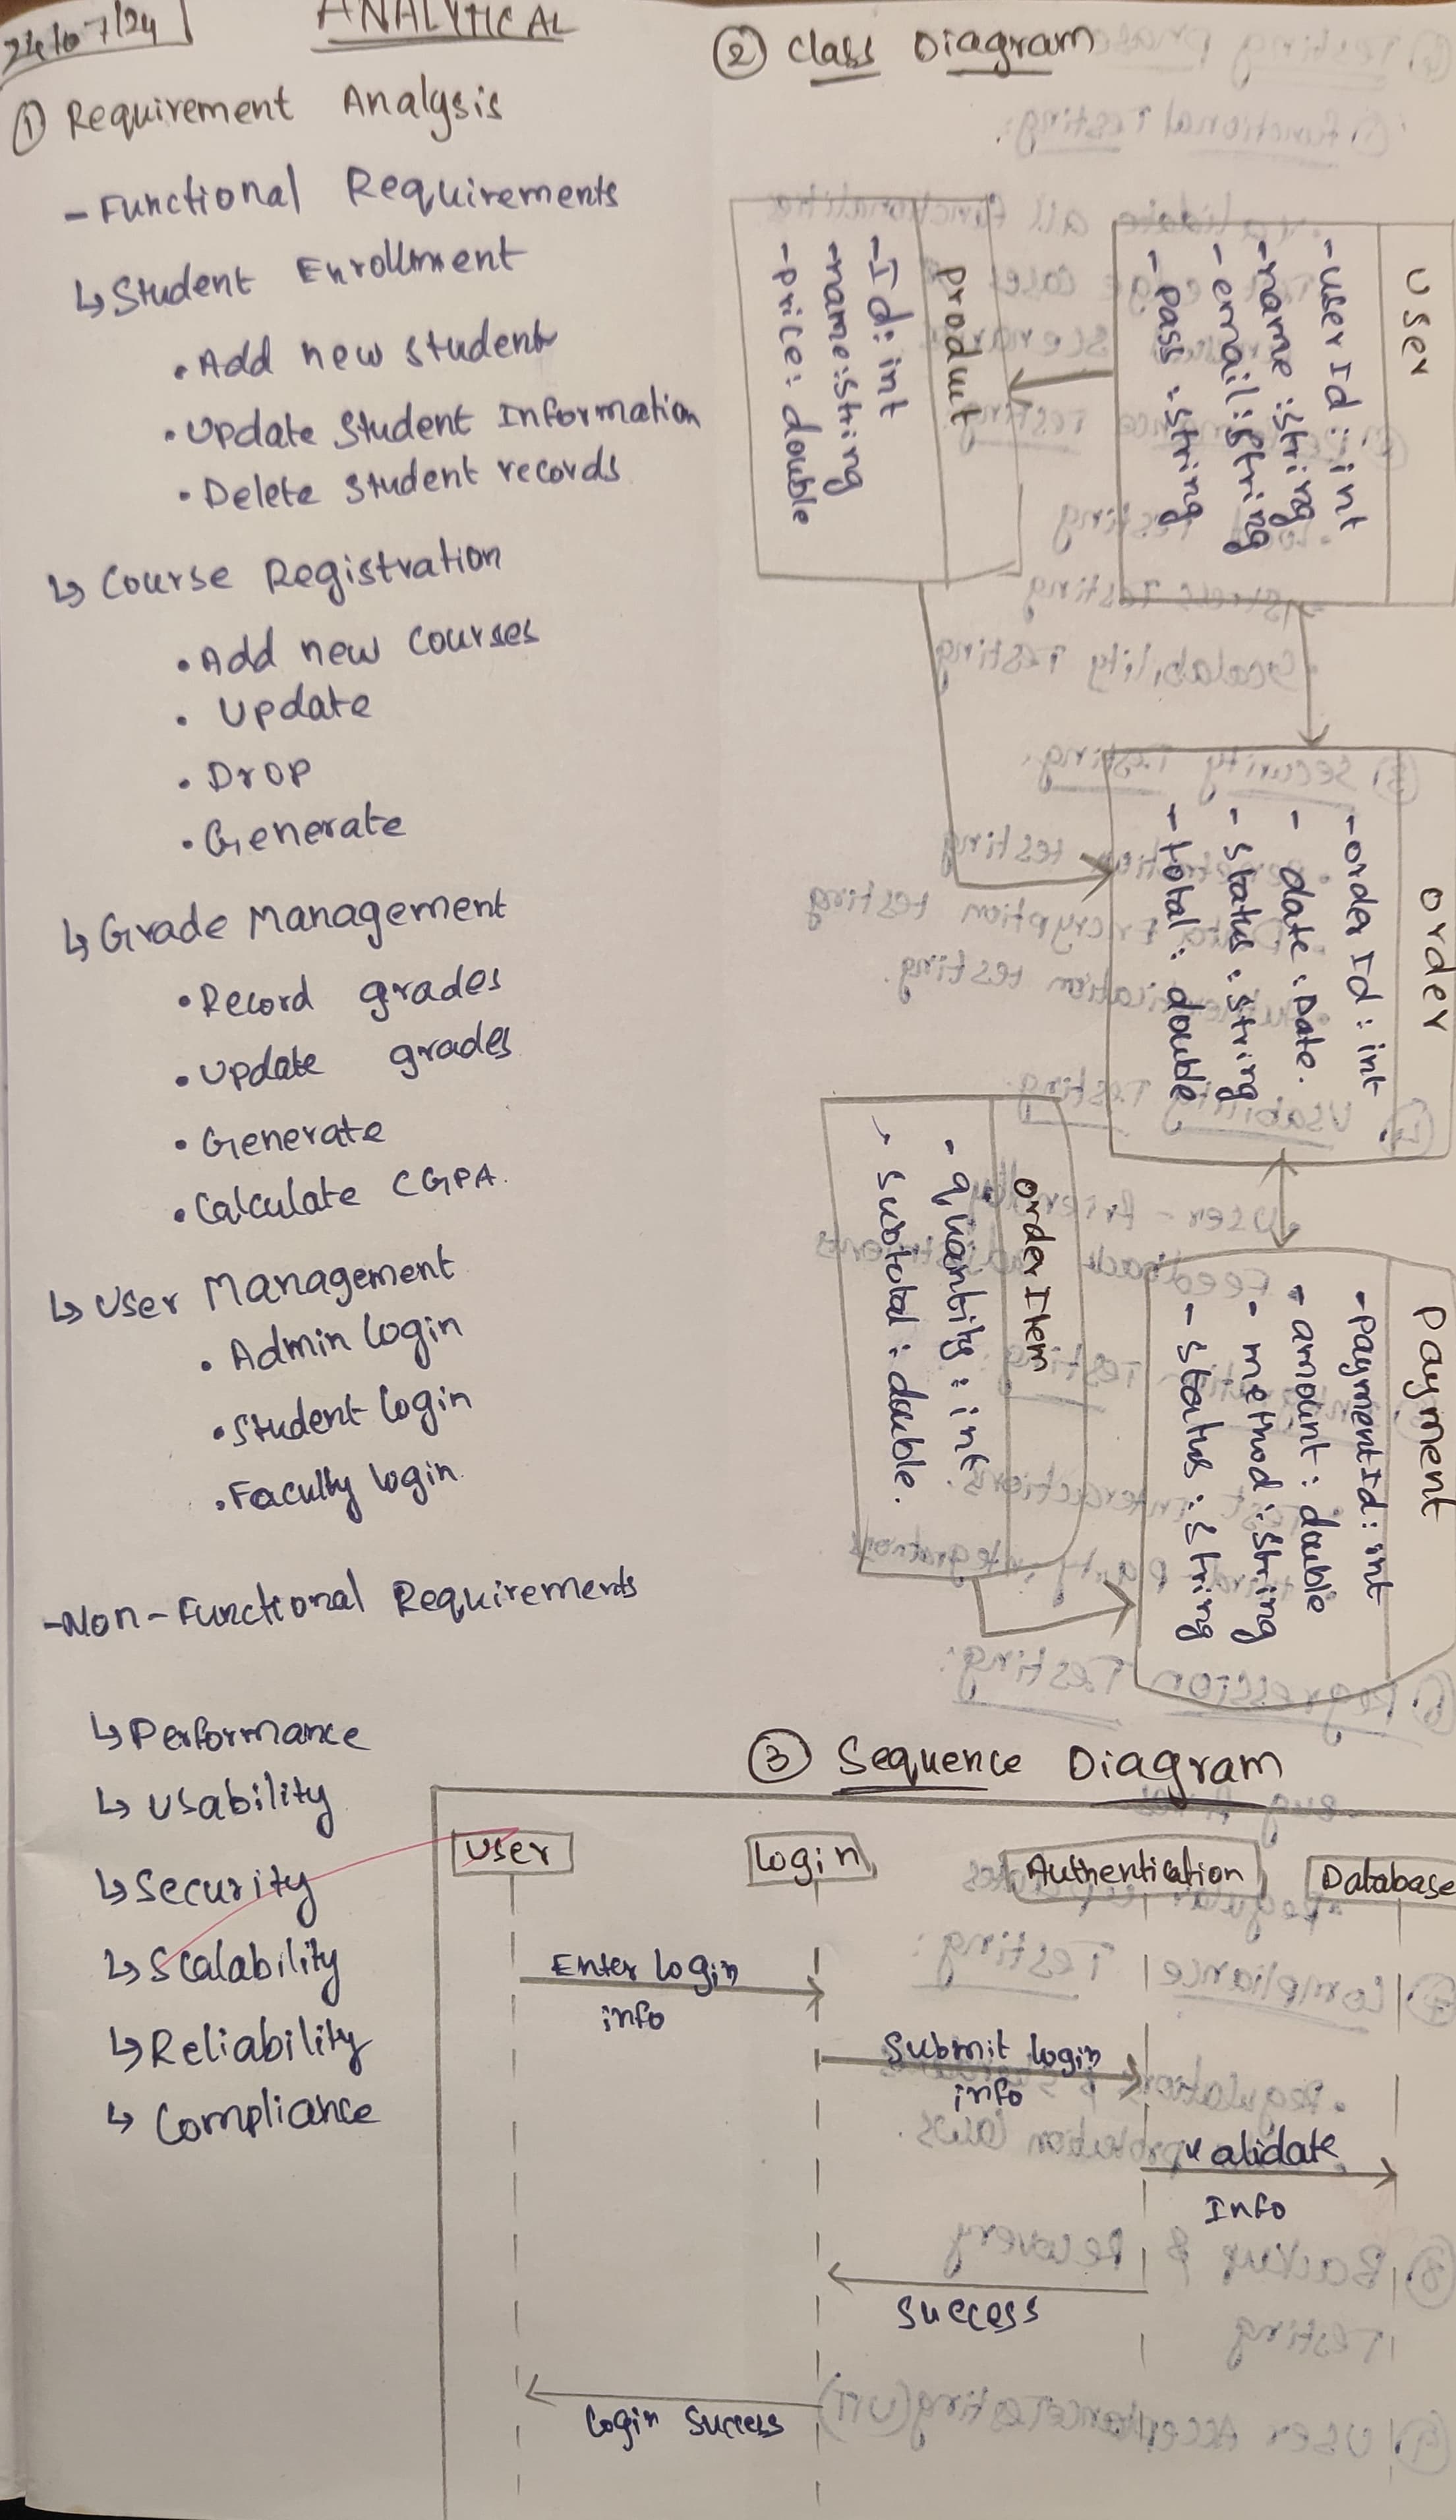 24/07/24
ANALYTICAL
① Requirement Analysis
- Functional Requirements
↳ Student Enrollment
• Add new student
• Update Student Information
• Delete student records
↳ Course Registration
• Add new courses
• Update
• Drop
• Generate
↳ Grade Management
• Record grades
• Update grades
• Generate
• Calculate CGPA.
↳ User Management
• Admin login
• Student login
• Faculty login
- Non-Functional Requirements
↳ Performance
↳ Usability
↳ Security
↳ Scalability
↳ Reliability
↳ Compliance
② Class Diagram
User
- user Id : int
- name : string
- email : string
- pass : string
Product
- Id : int
- name : string
- price : double
order
- order Id : int
- date : Date.
- status : string
- total : double
order Item
- quantity : int
- subtotal : double.
Payment
- payment Id : int
- amount : double
- method : string
- status : string
③ Sequence Diagram
User
Login
Authentication
Database
Enter login
info
Submit login
info
validate
Info
success
login success